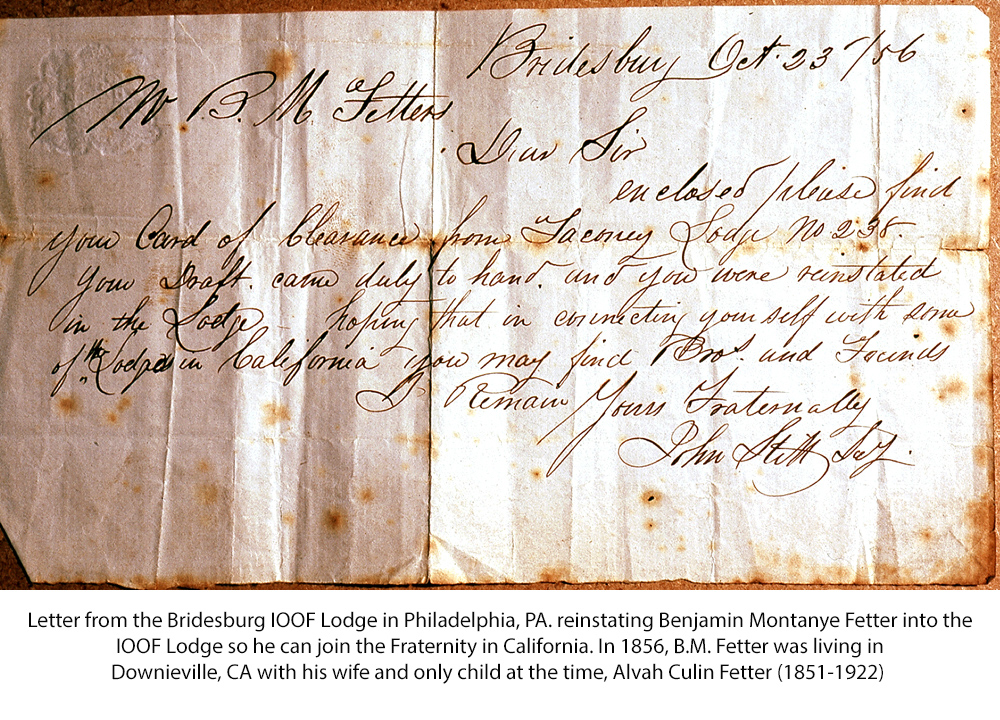 Bridesburg Oct. 23 /56
Mr B. M. Fetters
Dear Sir
enclosed please find
your Card of Clearance from Taconey Lodge No 238.
your Draft. came duly to hand. and you were reinstated
in the Lodge - hoping that in connecting yourself with some
of the Lodges in California you may find Bros. and Friends
I Remain Yours Fraternally
John Stitt Secy.
Letter from the Bridesburg IOOF Lodge in Philadelphia, PA. reinstating Benjamin Montanye Fetter into the
IOOF Lodge so he can join the Fraternity in California. In 1856, B.M. Fetter was living in
Downieville, CA with his wife and only child at the time, Alvah Culin Fetter (1851-1922)